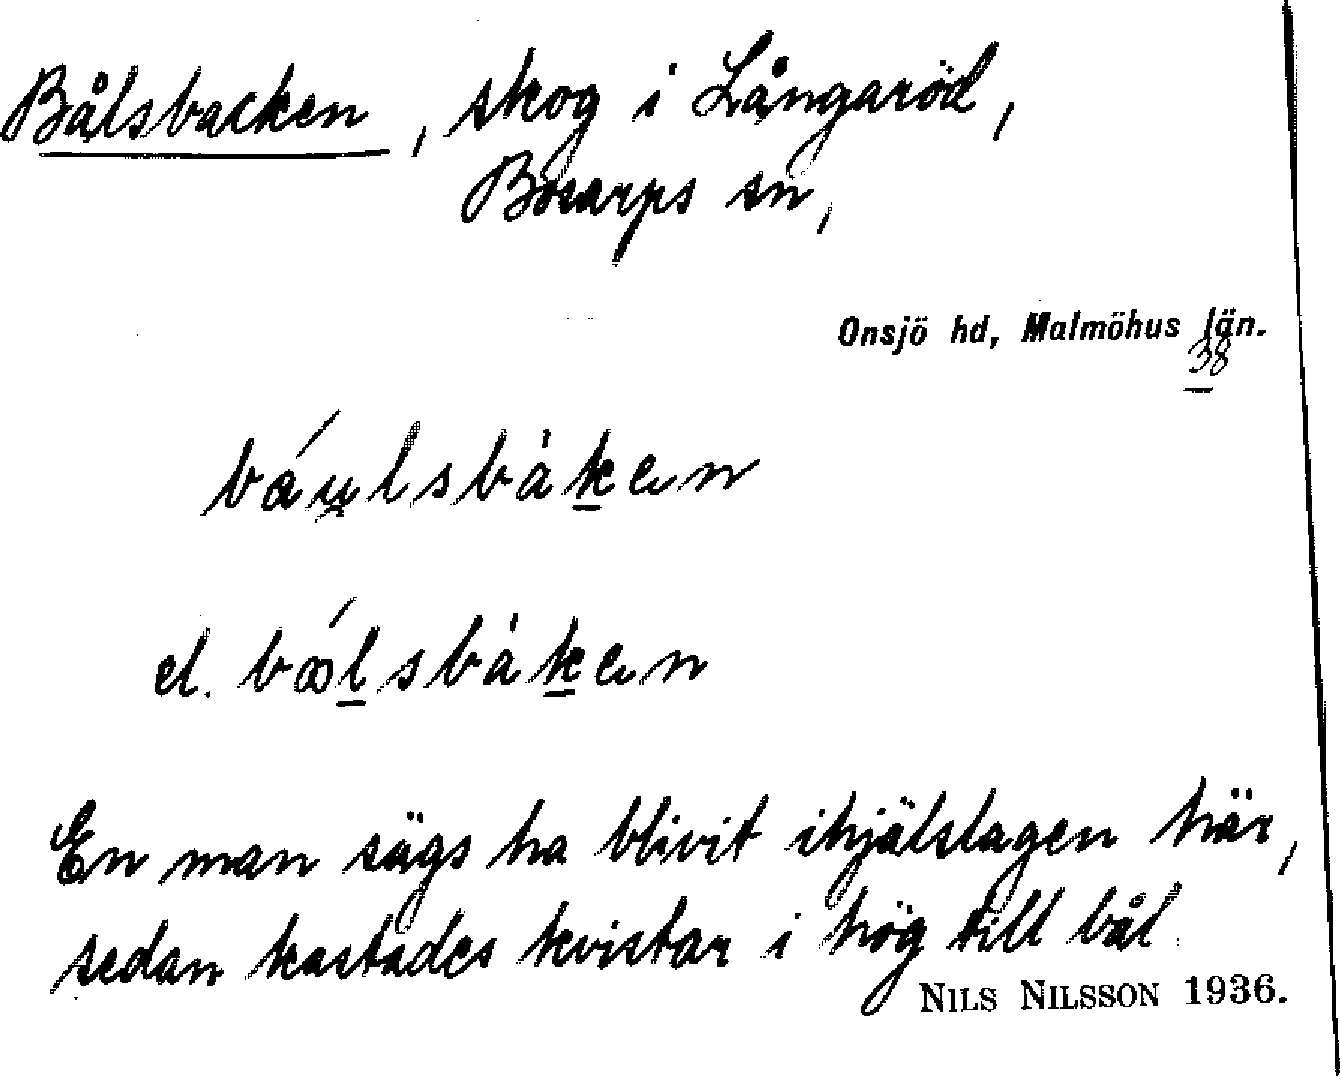 Bålsbacken, skog i Långaröd,
Bosarps sn,
Onsjö hd, Malmöhus län.
38
báu̯lsbàk̲en
el. ból̲sbàk̲en
En man sägs ha blivit ihjälslagen här,
sedan kastades kvistar i hög till bål.
NILS NILSSON 1936.